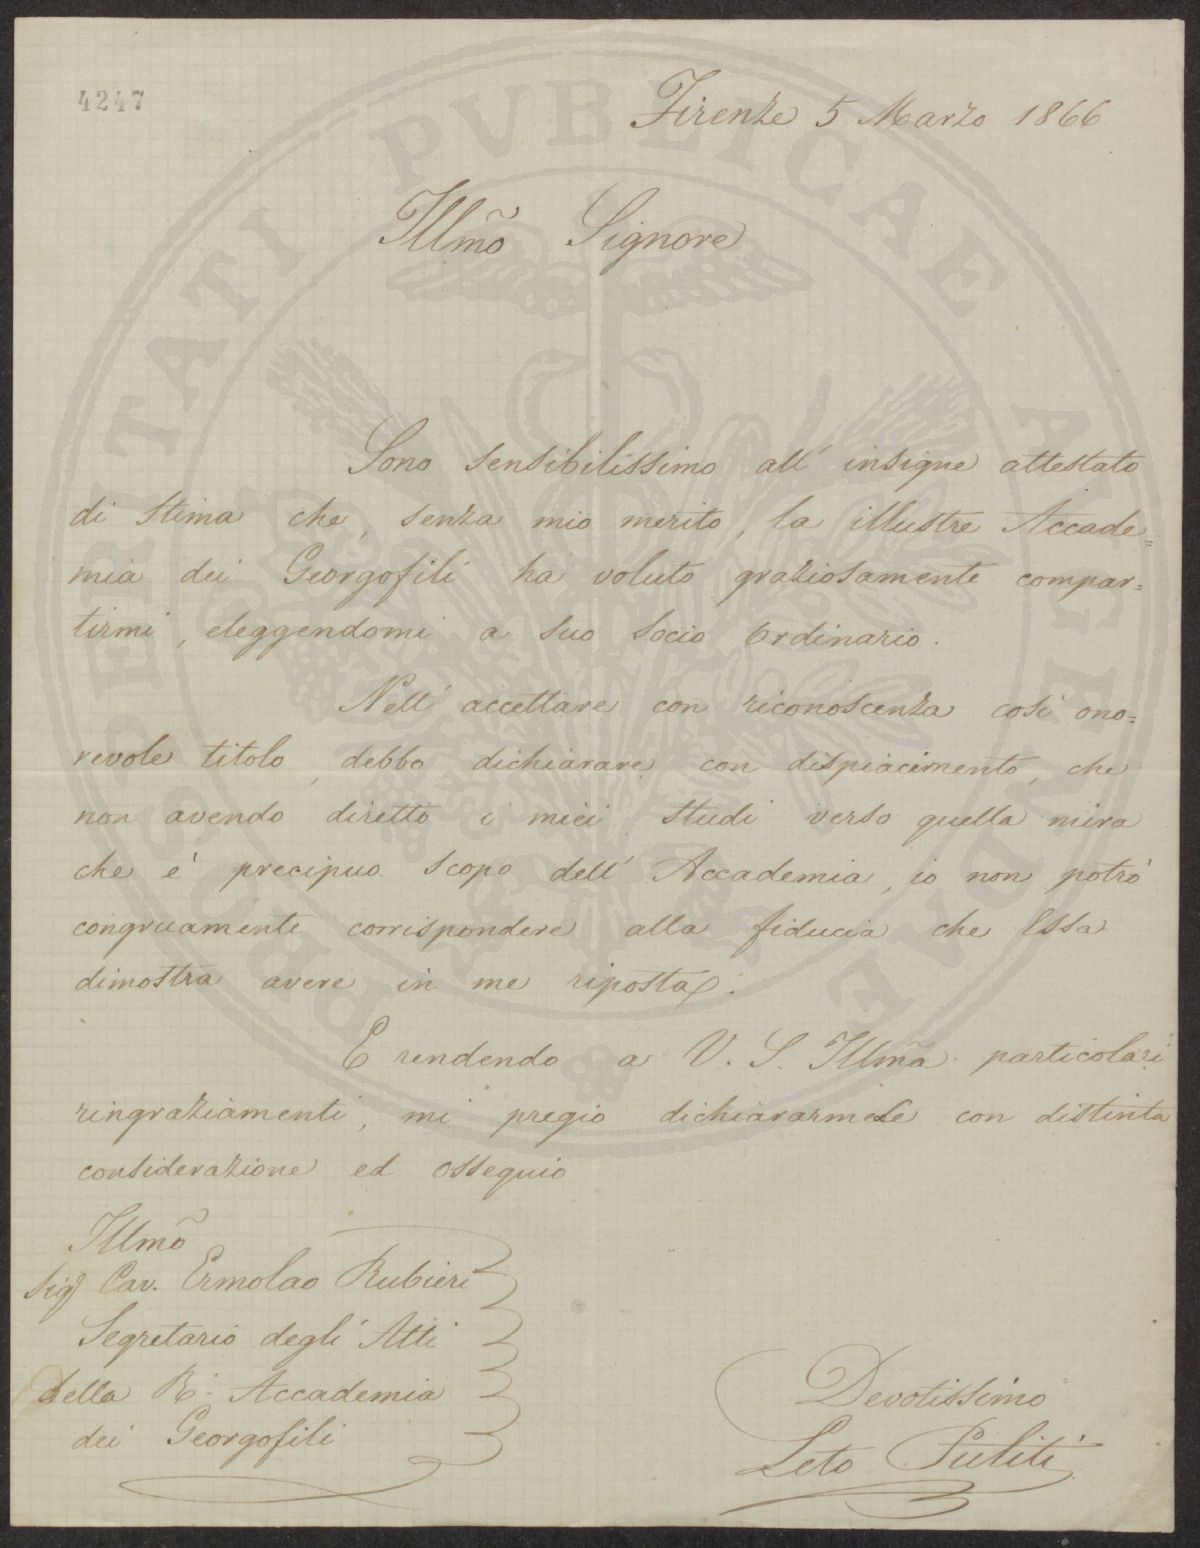 4247
Firenze 5 Marzo 1866
Illm̃o Signore
Sono sensibilissimo all' insigne attestato
di stima che, senza mio merito, la illustre Accade=
mia dei Georgofili ha voluto graziosamente compar=
tirmi, eleggendomi a suo socio ordinario.
Nell' accettare con riconoscenza così ono=
revole titolo, debbo dichiarare con dispiacimento, che
non avendo diretto i miei studi verso quella mira
che è precipuo scopo dell' Accademia, io non potrò
congruamente corrispondere alla fiducia che Essa
dimostra avere in me riposta.
E rendendo a V. S. Illm̃a particolari
ringraziamenti, mi pregio dichiararmele con distinta
considerazione ed ossequio
Illm̃o
Sig Cav. Ermolao Rubieri
Segretario degli Atti
Della R. Accademia
dei Georgofili
Devotissimo
Leto Puliti
PROSPERITATI PVBLICAE AVGENDAE